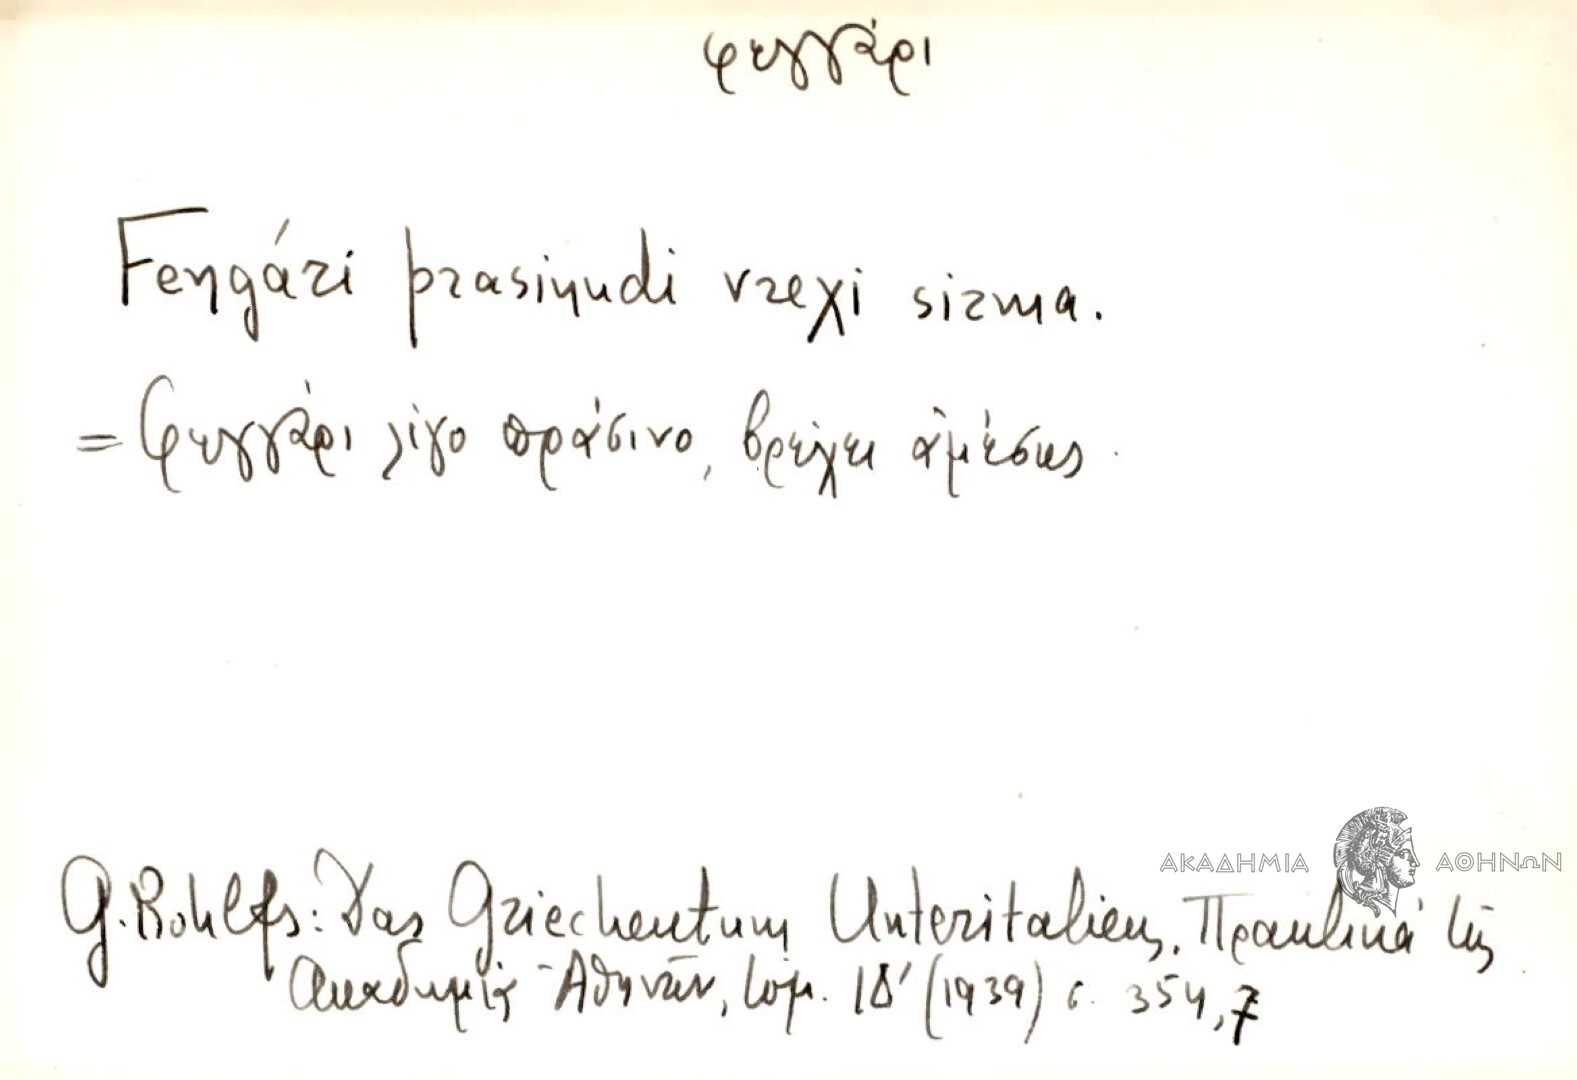 φεγγάρι
Fengári prasinudi vrexi sirma.
= Φεγγάρι λίγο πράσινο, βρέχει ἀμέσως.
G. Rohlfs: Das Griechentum Unteritaliens, Πρακτικὰ τῆς
Ἀκαδημίας Ἀθηνῶν, τόμ. ΙΔ' (1939) σ. 354,7
ΑΚΑΔΗΜΙΑ ΑΘΗΝΩΝ